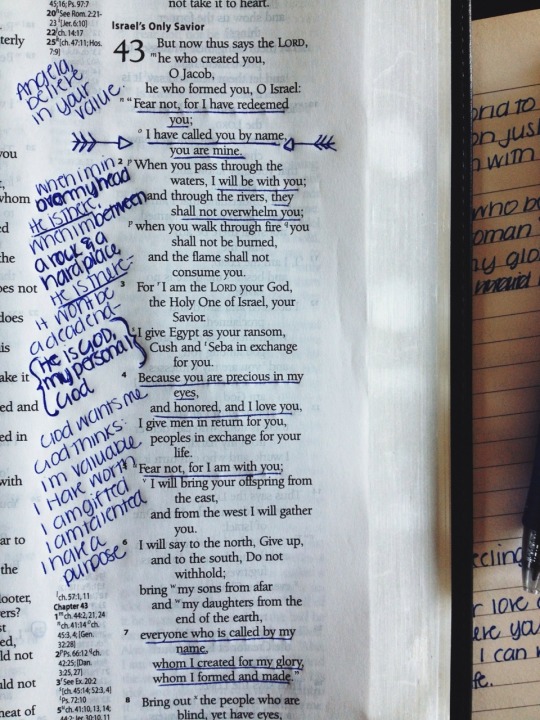 not take it to heart.
45;16; Ps. 97:7
20 See Rom. 2:21-
23 [Jer. 6:10]
22 ch. 14:17
25 [ch. 47:11; Hos.
7:9]
Israel's Only Savior
43 But now thus says the LORD,
he who created you,
O Jacob,
he who formed you, O Israel:
"Fear not, for I have redeemed
you;
I have called you by name,
you are mine.
2 When you pass through the
waters, I will be with you;
and through the rivers, they
shall not overwhelm you;
when you walk through fire you
shall not be burned,
and the flame shall not
consume you.
3 For I am the LORD your God,
the Holy One of Israel, your
Savior.
I give Egypt as your ransom,
Cush and Seba in exchange
for you.
4 Because you are precious in my
eyes,
and honored, and I love you,
I give men in return for you,
peoples in exchange for your
life.
5 Fear not, for I am with you;
I will bring your offspring from
the east,
and from the west I will gather
you.
6 I will say to the north, Give up,
and to the south, Do not
withhold;
bring my sons from afar
and my daughters from the
end of the earth,
7 everyone who is called by my
name,
whom I created for my glory,
whom I formed and made."
8 Bring out the people who are
blind, yet have eyes,
Angela,
believe
in your
value.
when i'm in
over my head
He is here.
when i'm between
a rock & a
hard place
He is here-
it won't be
a dead end
He is GOD,
my personal
God
God wants me
God thinks:
I'm valuable
I Have worth
I am gifted
I am talented
I have a
purpose
ch. 57:1, 11
Chapter 43
1 ch. 44:2, 21, 24
ch. 41:14 ch.
45:3, 4; [Gen.
32:28]
2 Ps. 66:12 ch.
42:25; [Dan.
3:25, 27]
3 See Ex. 20:2
[ch. 45:14; 52:3, 4]
Ps. 72:10
5 ch. 41:10, 13, 14;
44:2; Jer. 30:10, 11
terly
you
whom
ed
the
oes not
does
is
ake it
ed and
ed in
with
ar to
the
looter,
ers?
st
ed,
uld not
uld not
heat of
to
on just
with
who
oman
my
love
I can